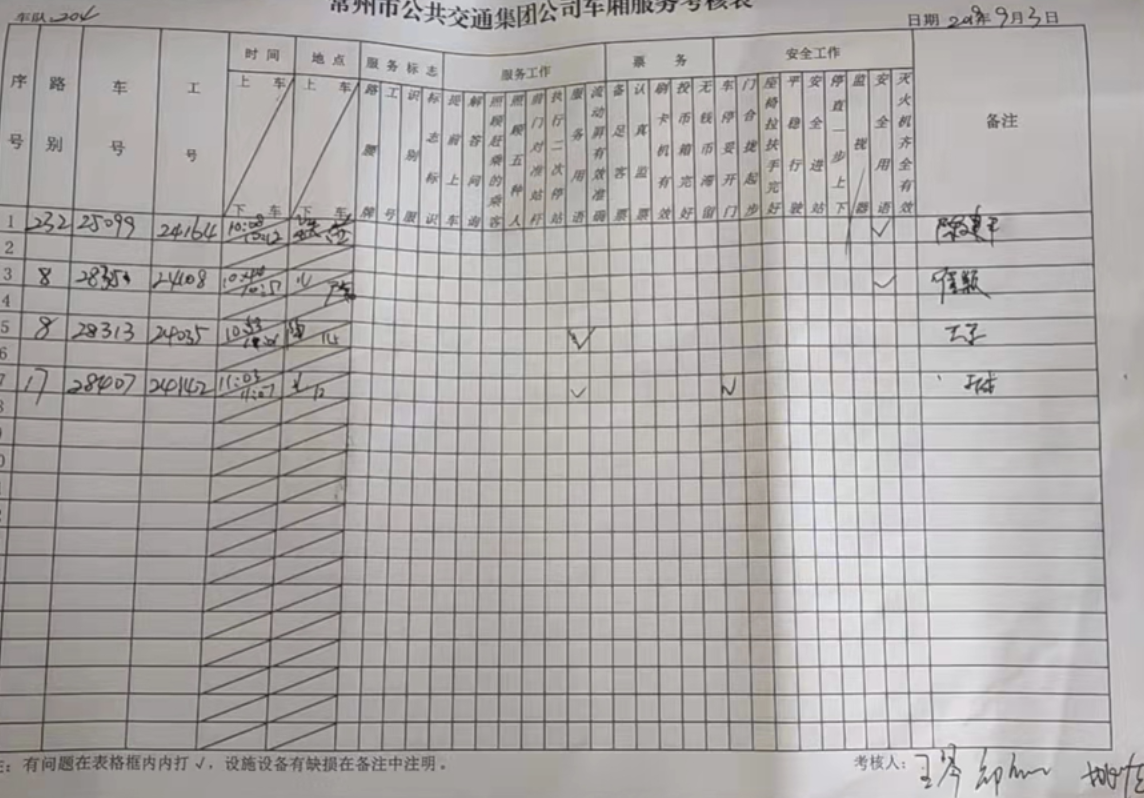 常州市公共交通集团公司车厢服务考核表
日期 2018年9月3日
序号 路别 车号 工号 时间 地点 服务标志 服务工作 票务 安全工作 备注
上车 下车 上车 下车 路腰牌 工号 识别服 标志标识 提前上车 解答问询 照顾赶乘的乘客 照顾五种人 前门对准站杆 执行二次停站 服务用语 流动屏有效准确 备足客票 认真监票 刷卡机有效 投币箱完好 无钱币滞留 车停妥开门 门合拢起步 座椅拉扶手完好 平稳行驶 安全进站 停直一步上下 监视器 安全用语 灭火机齐全有效
1 232 25099 24164 10:08 10:12 √
2
3 8 24108 √
4
5 8 28313 24035 √
6
17 28407 240142 11:03 11:07 √ √
注：有问题在表格框内内打√，设施设备有缺损在备注中注明。
考核人：王琴